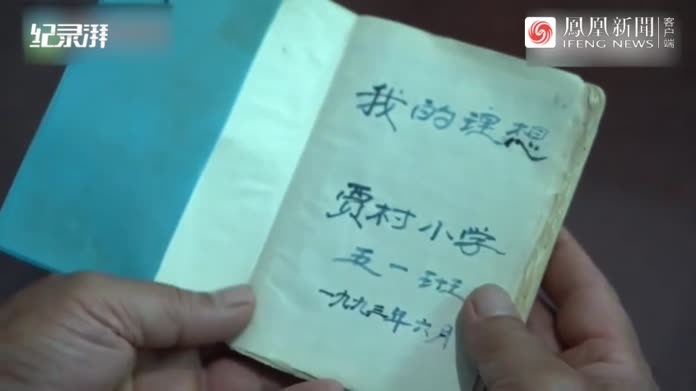 纪录湃
鳳凰新聞
客户端
IFENG NEWS
我的理想
贾村小学
五一班
一九九三年六月